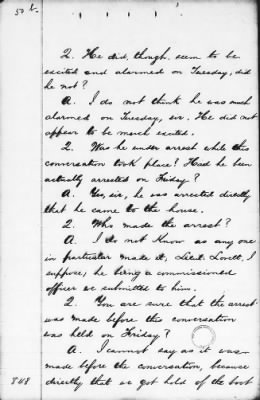 50 b.
Q. He did, though, seem to be
excited and alarmed on Tuesday, did
he not?
A. I do not think he was much
alarmed on Tuesday, sir. He did not
appear to be much excited.
Q. Was he under arrest while this
conversation took place? Had he been
actually arrested on Friday?
A. Yes, sir, he was arrested directly
that he came to the house.
Q. Who made the arrest?
A. I do not know as any one
in particular made it, Lieut. Lovett, I
suppose, he being a commissioned
officer we submitted to him.
Q. You are sure that the arrest
was made before this conversation
was held on Friday?
A. I cannot say as it was
made before the conversation, because
directly that we got hold of the boot